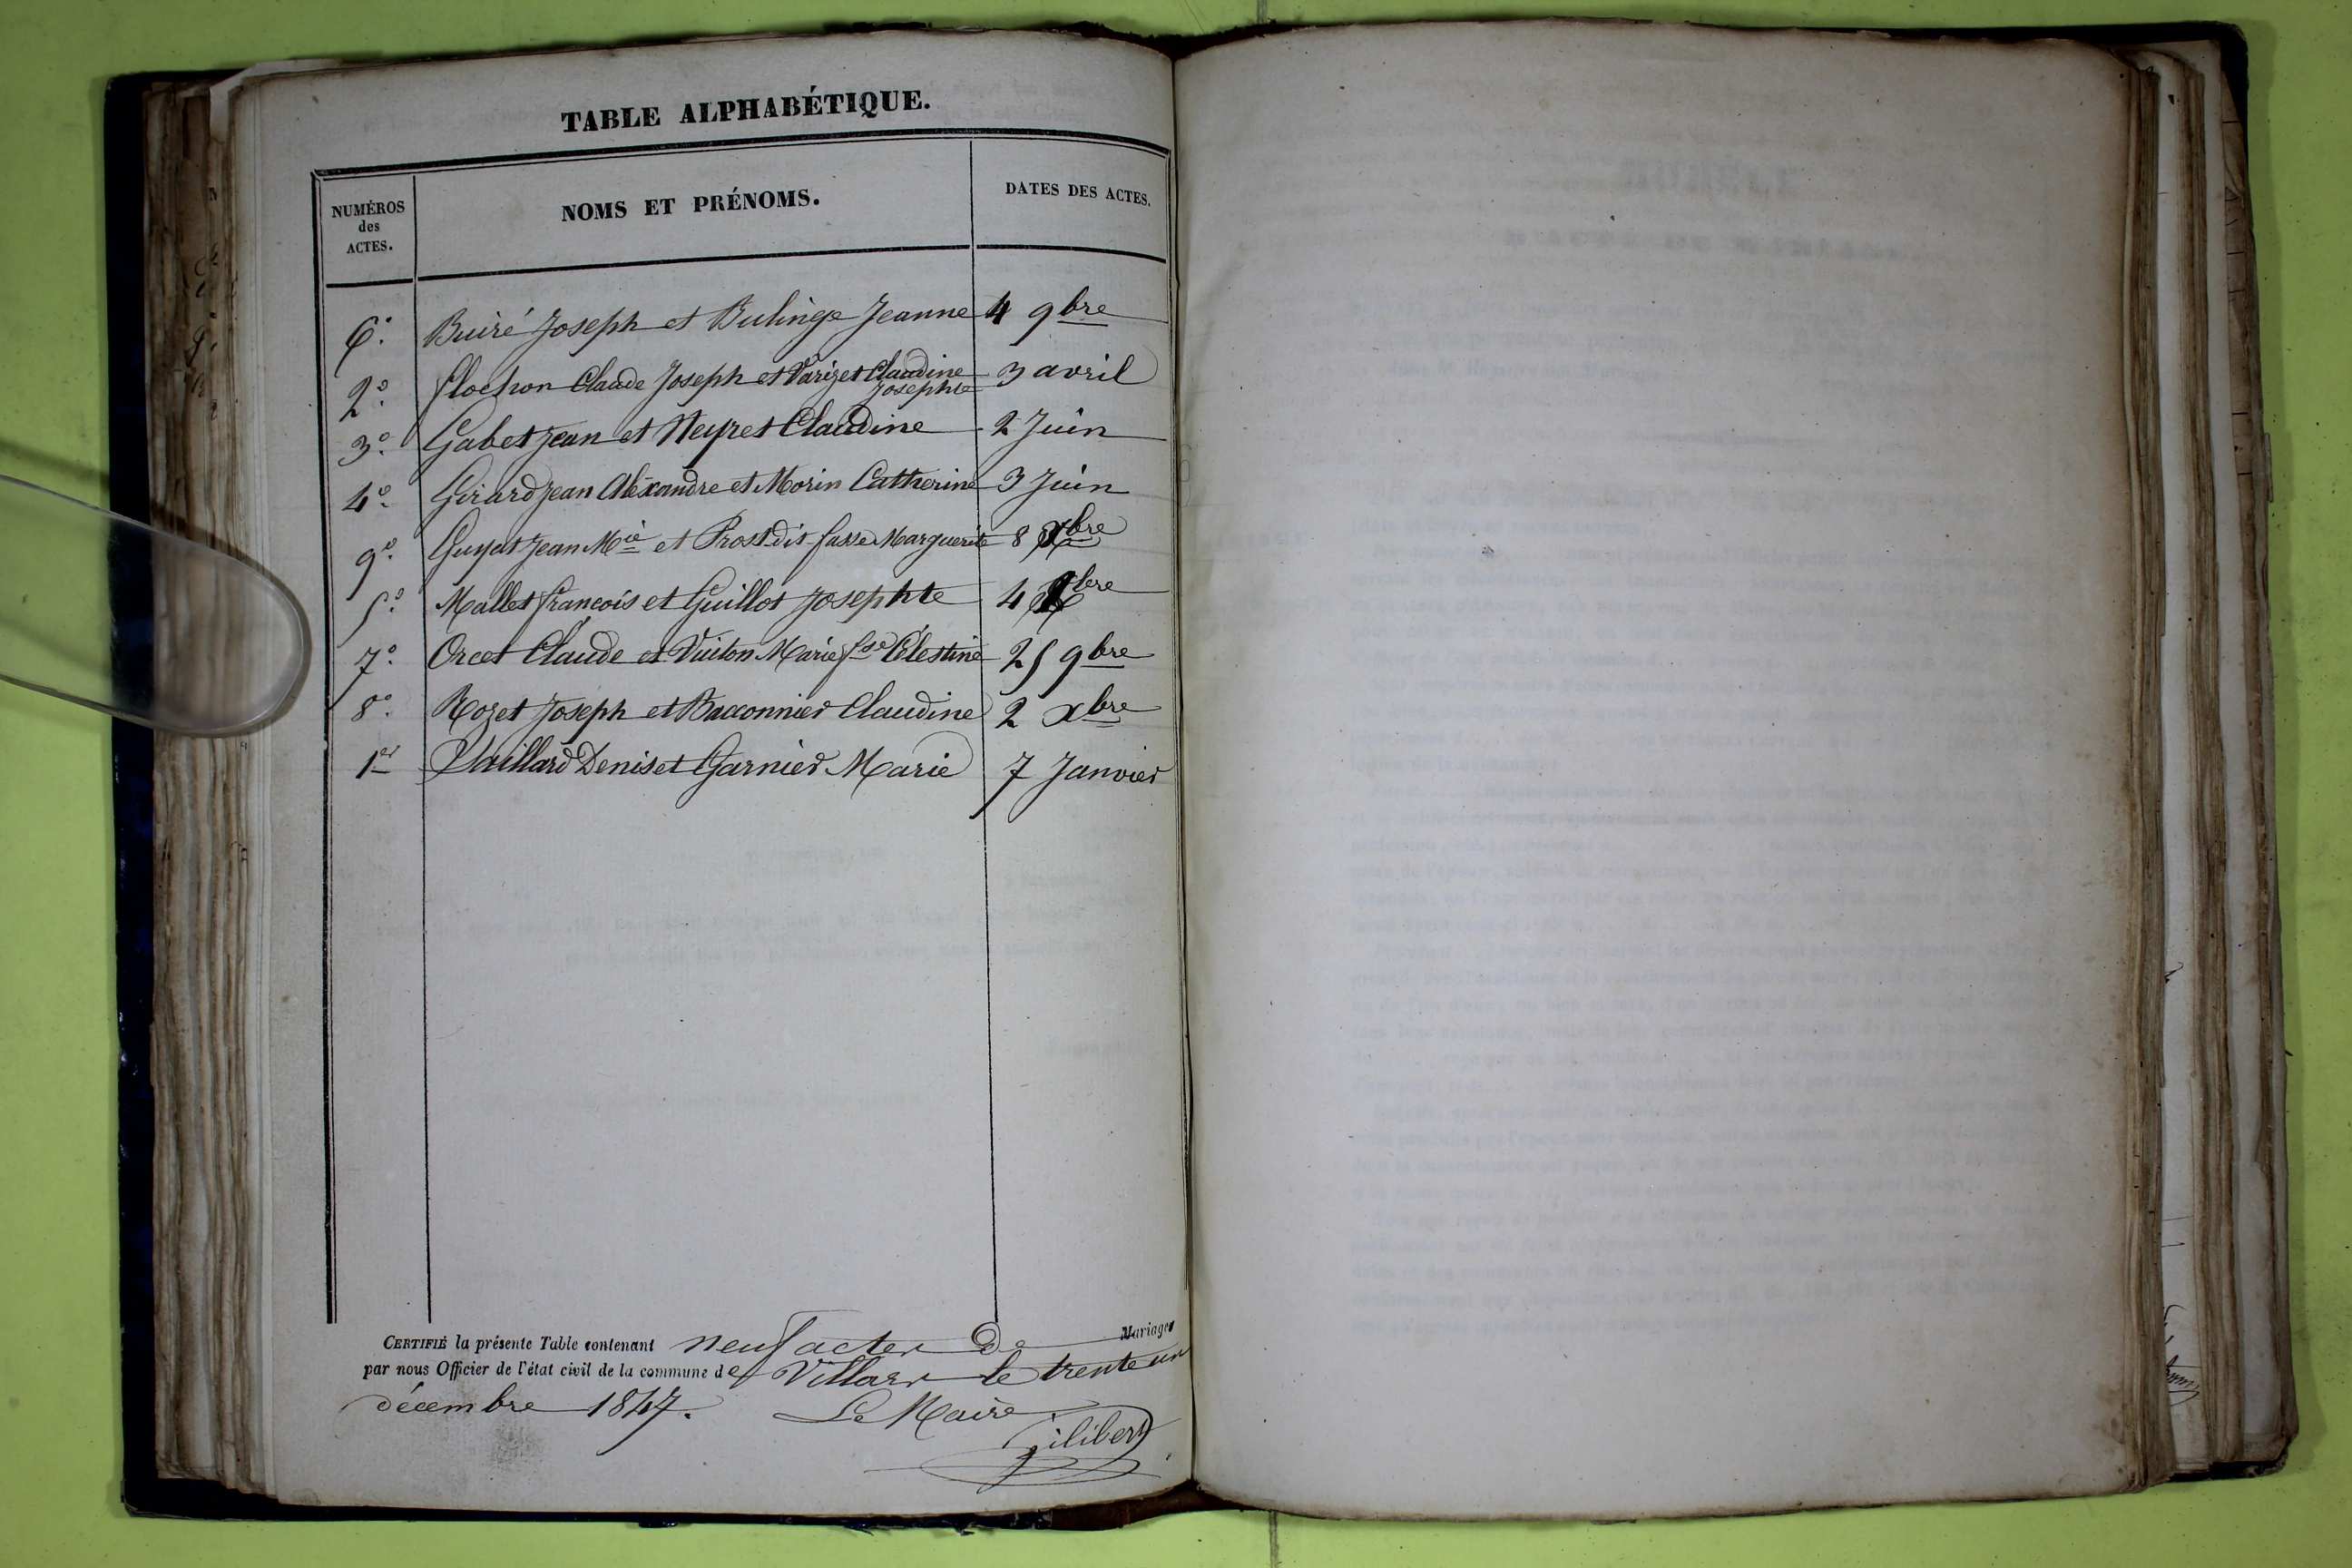 TABLE ALPHABÉTIQUE.
NUMÉROS des ACTES.
NOMS ET PRÉNOMS.
DATES DES ACTES.
6° Buiré Joseph et Bulinge Jeanne 4 9bre
2° flochon Claude Joseph et Varizet Claudine Josephte 3 avril
3° Gabet Jean et Neyret Claudine 2 Juin
4° Girard Jean Aléxandre et Morin Catherine 3 Juin
9° Guyat Jean Mie et Prost dit fasse Marguerite 8 Xbre
5° Mallet françois et Guillot Josephte 4
7° Orcet Claude et Vuiton Marie fse Célestine 25 9bre
8° Rozet Joseph et Baconnier Claudine 2 Xbre
1er Vaillard Denis et Garnier Marie 7 Janvier
CERTIFIÉ la présente Table contenant neuf actes de Mariages
par nous Officier de l'état civil de la commune de Villars le trente un
décembre 1847. Le Maire
Gilibert